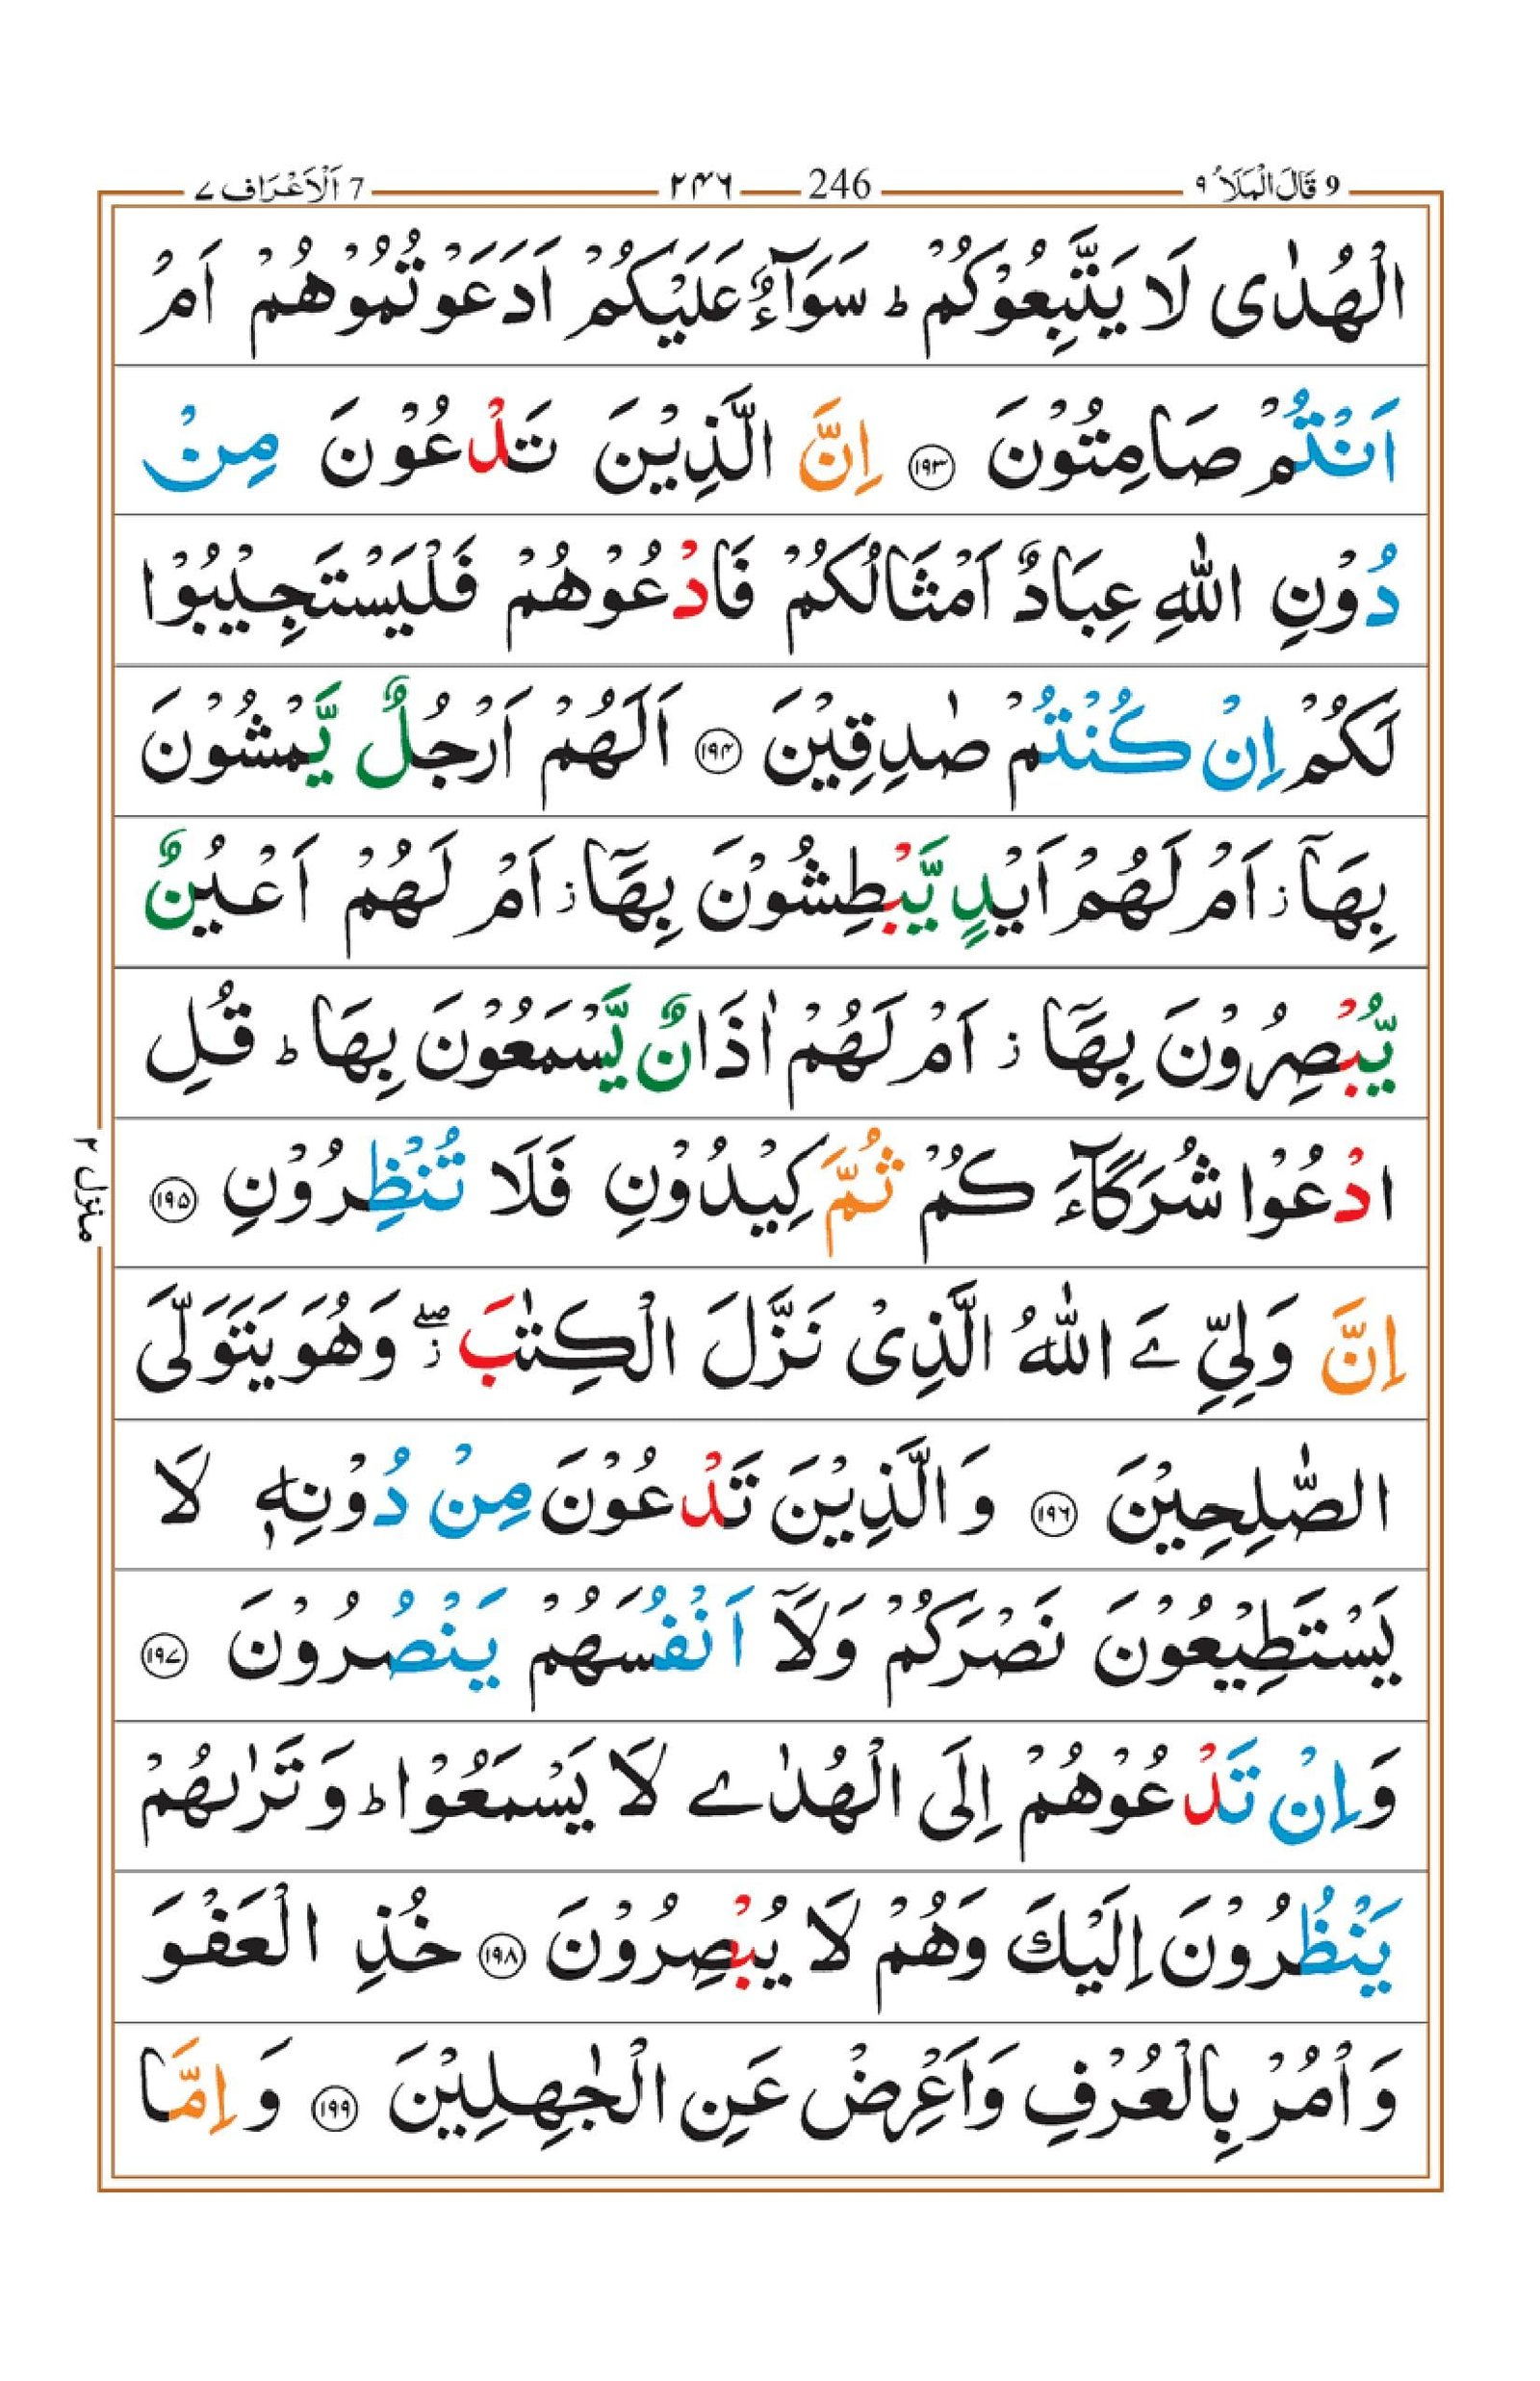 9 قَالَ الْمَلَاُ ٩ 246 ٢٤٦ 7 اَلْاَعْرَاف ٧
الْهُدٰى لَا يَتَّبِعُوْكُمْ ؕ سَوَآءٌ عَلَيْكُمْ اَدَعَوْتُمُوْهُمْ اَمْ
اَنْتُمْ صَامِتُوْنَ ۝۱۹۳ اِنَّ الَّذِيْنَ تَدْعُوْنَ مِنْ
دُوْنِ اللّٰهِ عِبَادٌ اَمْثَالُكُمْ فَادْعُوْهُمْ فَلْيَسْتَجِيْبُوْا
لَكُمْ اِنْ كُنْتُمْ صٰدِقِيْنَ ۝۱۹۴ اَلَهُمْ اَرْجُلٌ يَّمْشُوْنَ
بِهَاۤ ز اَمْ لَهُمْ اَيْدٍ يَّبْطِشُوْنَ بِهَاۤ ز اَمْ لَهُمْ اَعْيُنٌ
يُّبْصِرُوْنَ بِهَاۤ ز اَمْ لَهُمْ اٰذَانٌ يَّسْمَعُوْنَ بِهَا ؕ قُلِ
ادْعُوْا شُرَكَآءَ كُمْ ثُمَّ كِيْدُوْنِ فَلَا تُنْظِرُوْنِ ۝۱۹۵
اِنَّ وَلِيِّ ےَ اللّٰهُ الَّذِىْ نَزَّلَ الْكِتٰبَ ۖز وَهُوَ يَتَوَلَّى
الصّٰلِحِيْنَ ۝۱۹۶ وَالَّذِيْنَ تَدْعُوْنَ مِنْ دُوْنِهٖ لَا
يَسْتَطِيْعُوْنَ نَصْرَكُمْ وَلَاۤ اَنْفُسَهُمْ يَنْصُرُوْنَ ۝۱۹۷
وَاِنْ تَدْعُوْهُمْ اِلَى الْهُدٰے لَا يَسْمَعُوْا ؕ وَتَرٰىهُمْ
يَنْظُرُوْنَ اِلَيْكَ وَهُمْ لَا يُبْصِرُوْنَ ۝۱۹۸ خُذِ الْعَفْوَ
وَاْمُرْ بِالْعُرْفِ وَاَعْرِضْ عَنِ الْجٰهِلِيْنَ ۝۱۹۹ وَاِمَّا
منزل ۲